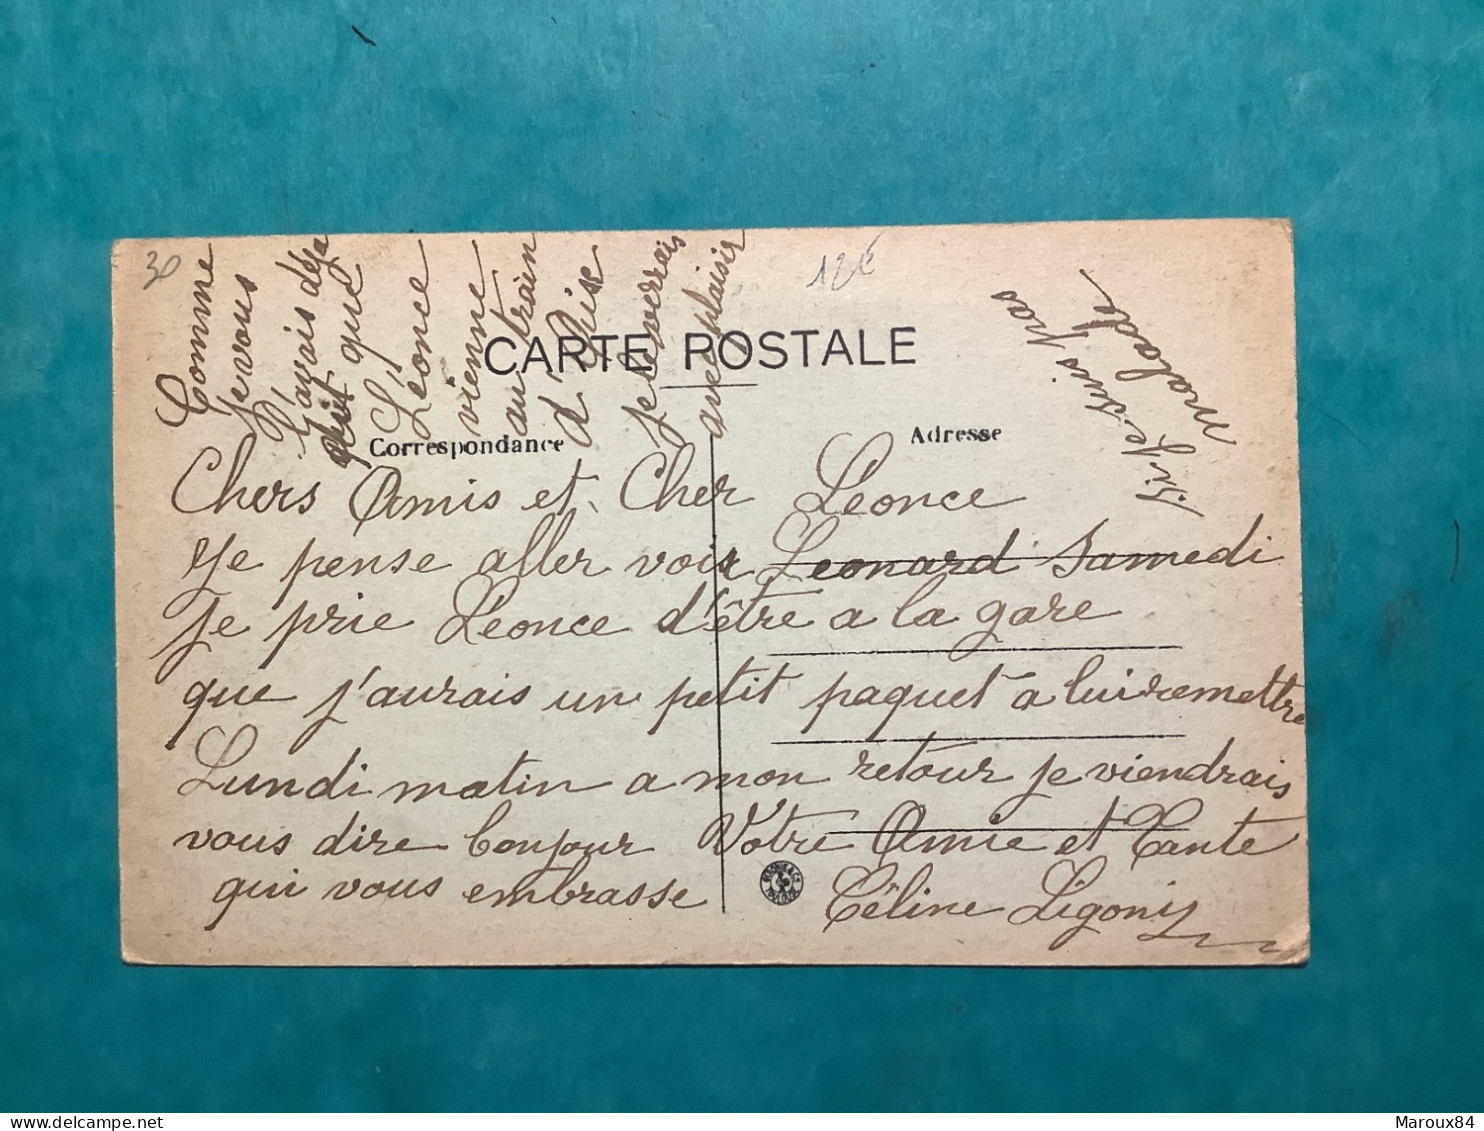 30
12€
CARTE POSTALE
Correspondance
Adresse
Chers Amis et Cher Léonce
Je pense aller voir Leonard Samedi
je prie Léonce d'être a la gare
que j'aurais un petit paquet a lui remettre
Lundi matin a mon retour je viendrais
vous dire bonjour Votre Amie et Tante
qui vous embrasse Céline Ligonis
Comme
je vous
l'avais déja
dit que
Léonce
vienne
au train
je le verrais
avec plaisir
si je suis pas
malade
Maroux84
delcampe.net